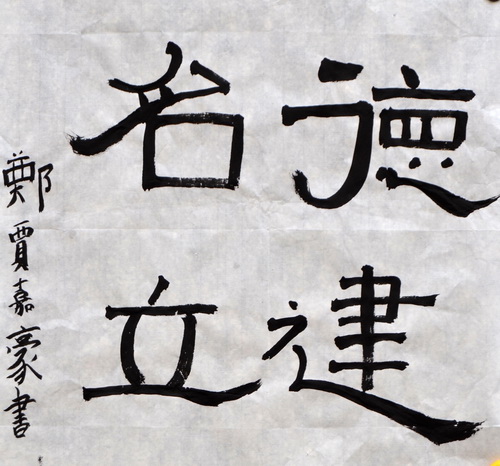 德建
名立
鄭賈嘉豪書